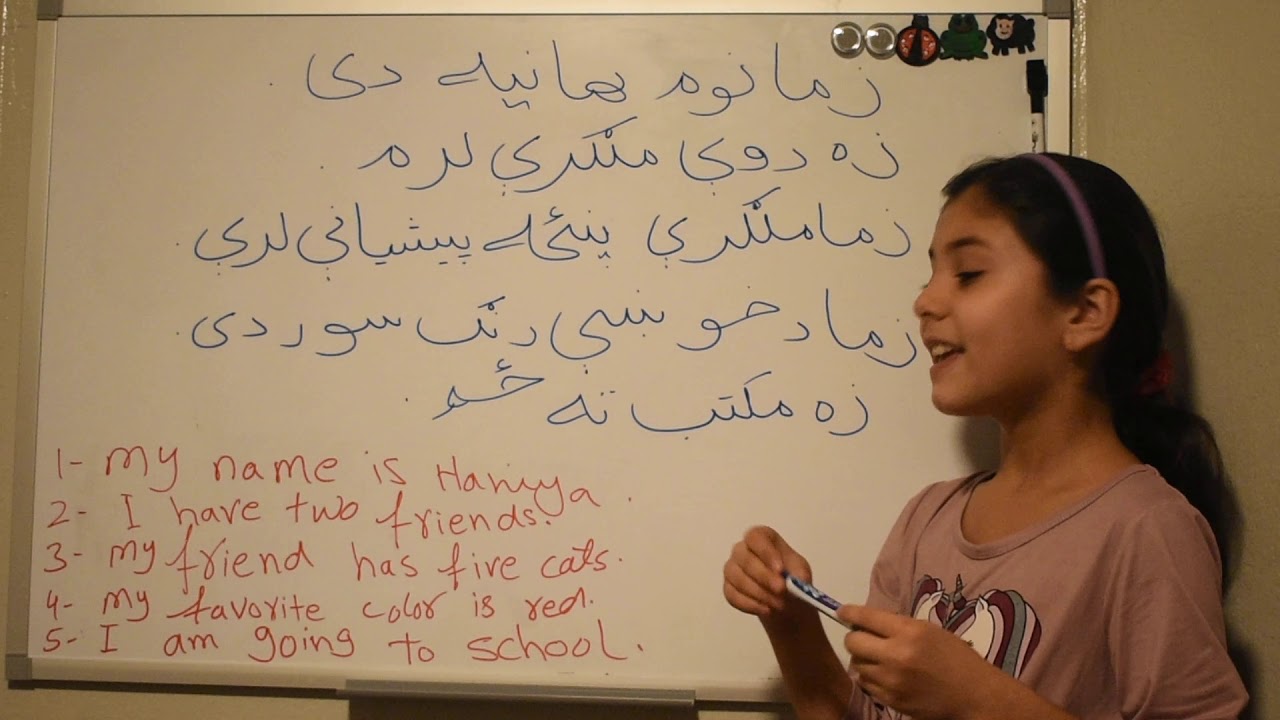 زما نوم هانیه دی .
زه دوې ملګرې لرم .
زما ملګرې پنځه پیشیانې لري .
زما د خوښې رنګ سور دی .
زه مکتب ته ځم .
1- My name is Haniya .
2- I have two friends.
3- my friend has five cats.
4- my favorite color is red.
5- I am going to school.